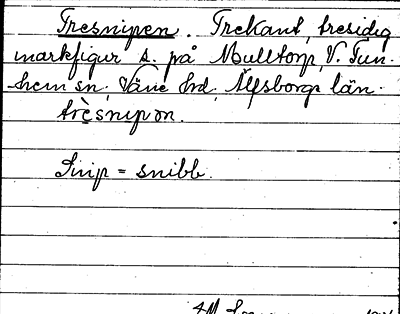 Tresnipen. Trekant, tresidig
markfigur s. på Mulltorp, V. Tun-
hem sn, Väne hd, Älfsborgs län.
trèsnipɷn.
Snip = snibb.